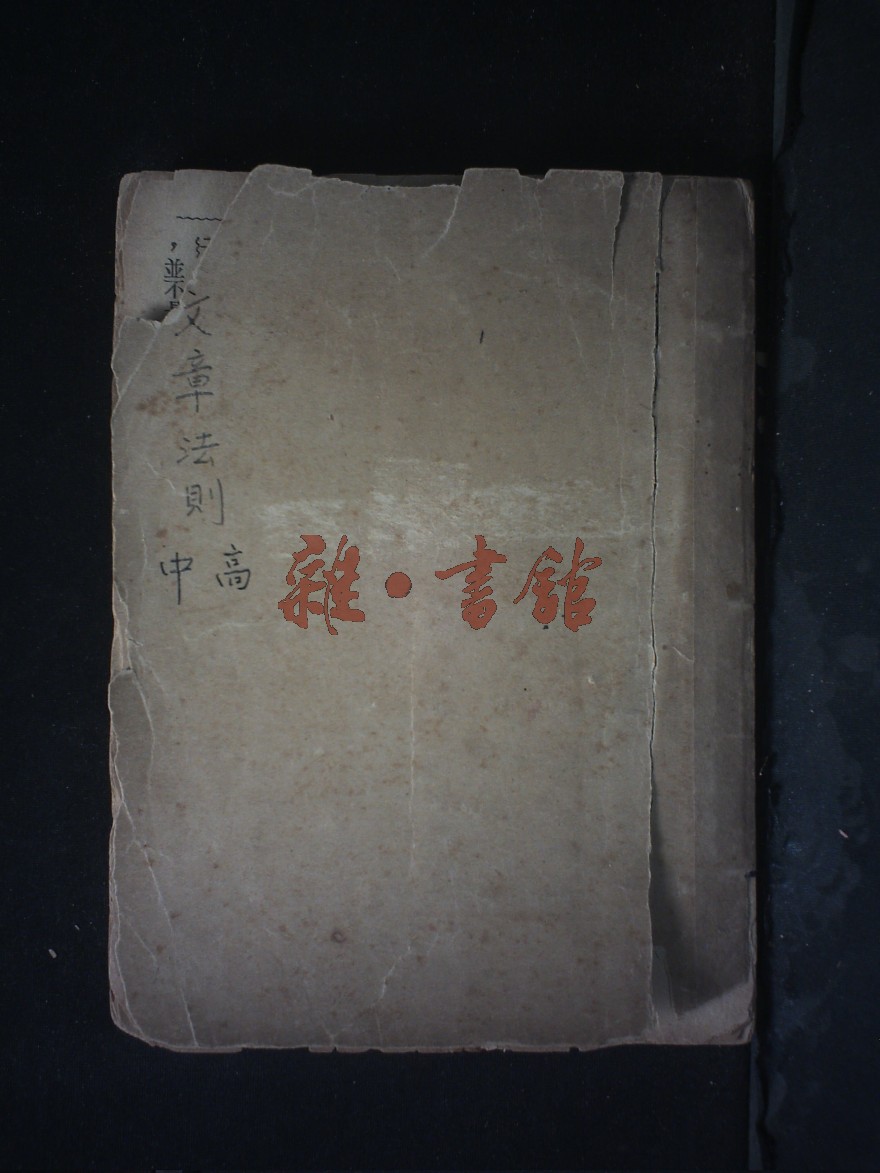 ，並不
文章法則
高
中
雜·書館